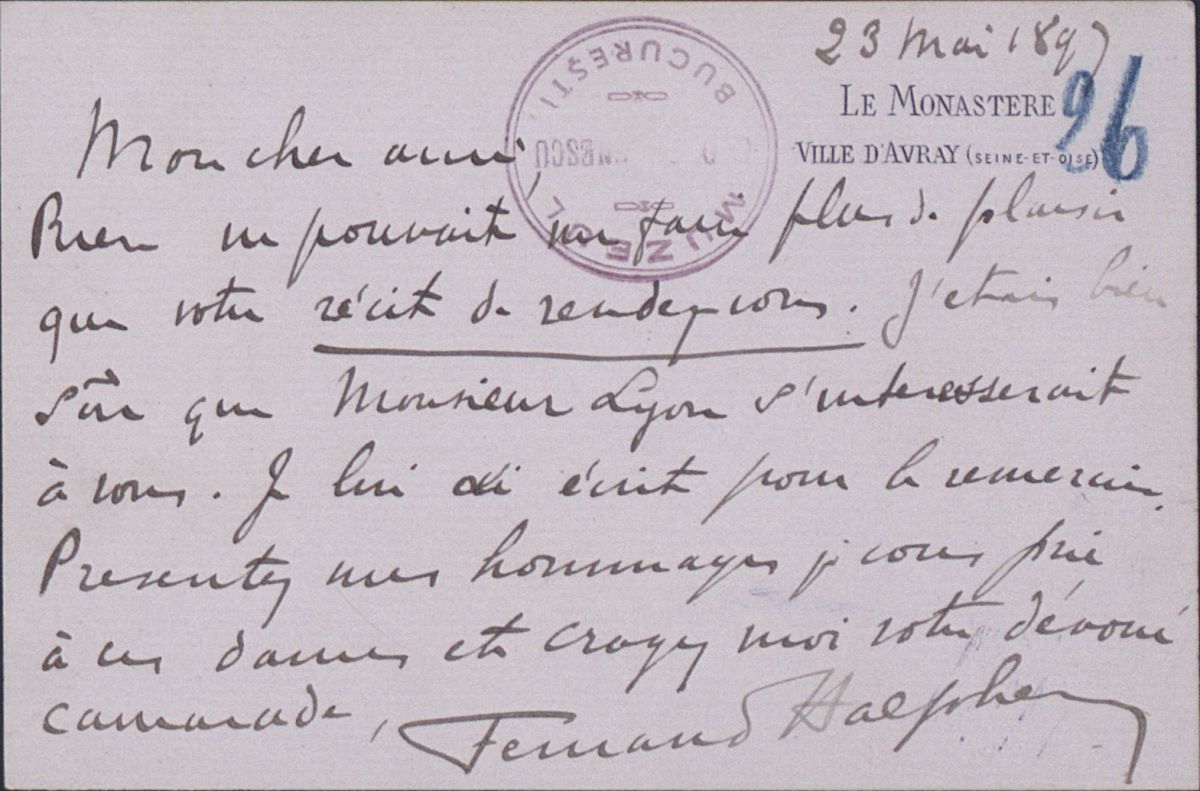 23 Mai 1897
LE MONASTERE
VILLE D'AVRAY (SEINE-ET-OISE)
26
MUZEUL
BUCUREȘTI
Mon cher ami,
Rien ne pouvait me faire plus de plaisir
que votre récit de rendez-vous. J'etais bien
sûr que Monsieur Lyon s'interesserait
à vous. Je lui ai écrit pour le remercier.
Presentez mes hommages je vous prie
à ces dames et croyez moi votre dévoué
camarade,
Fernand Halphen